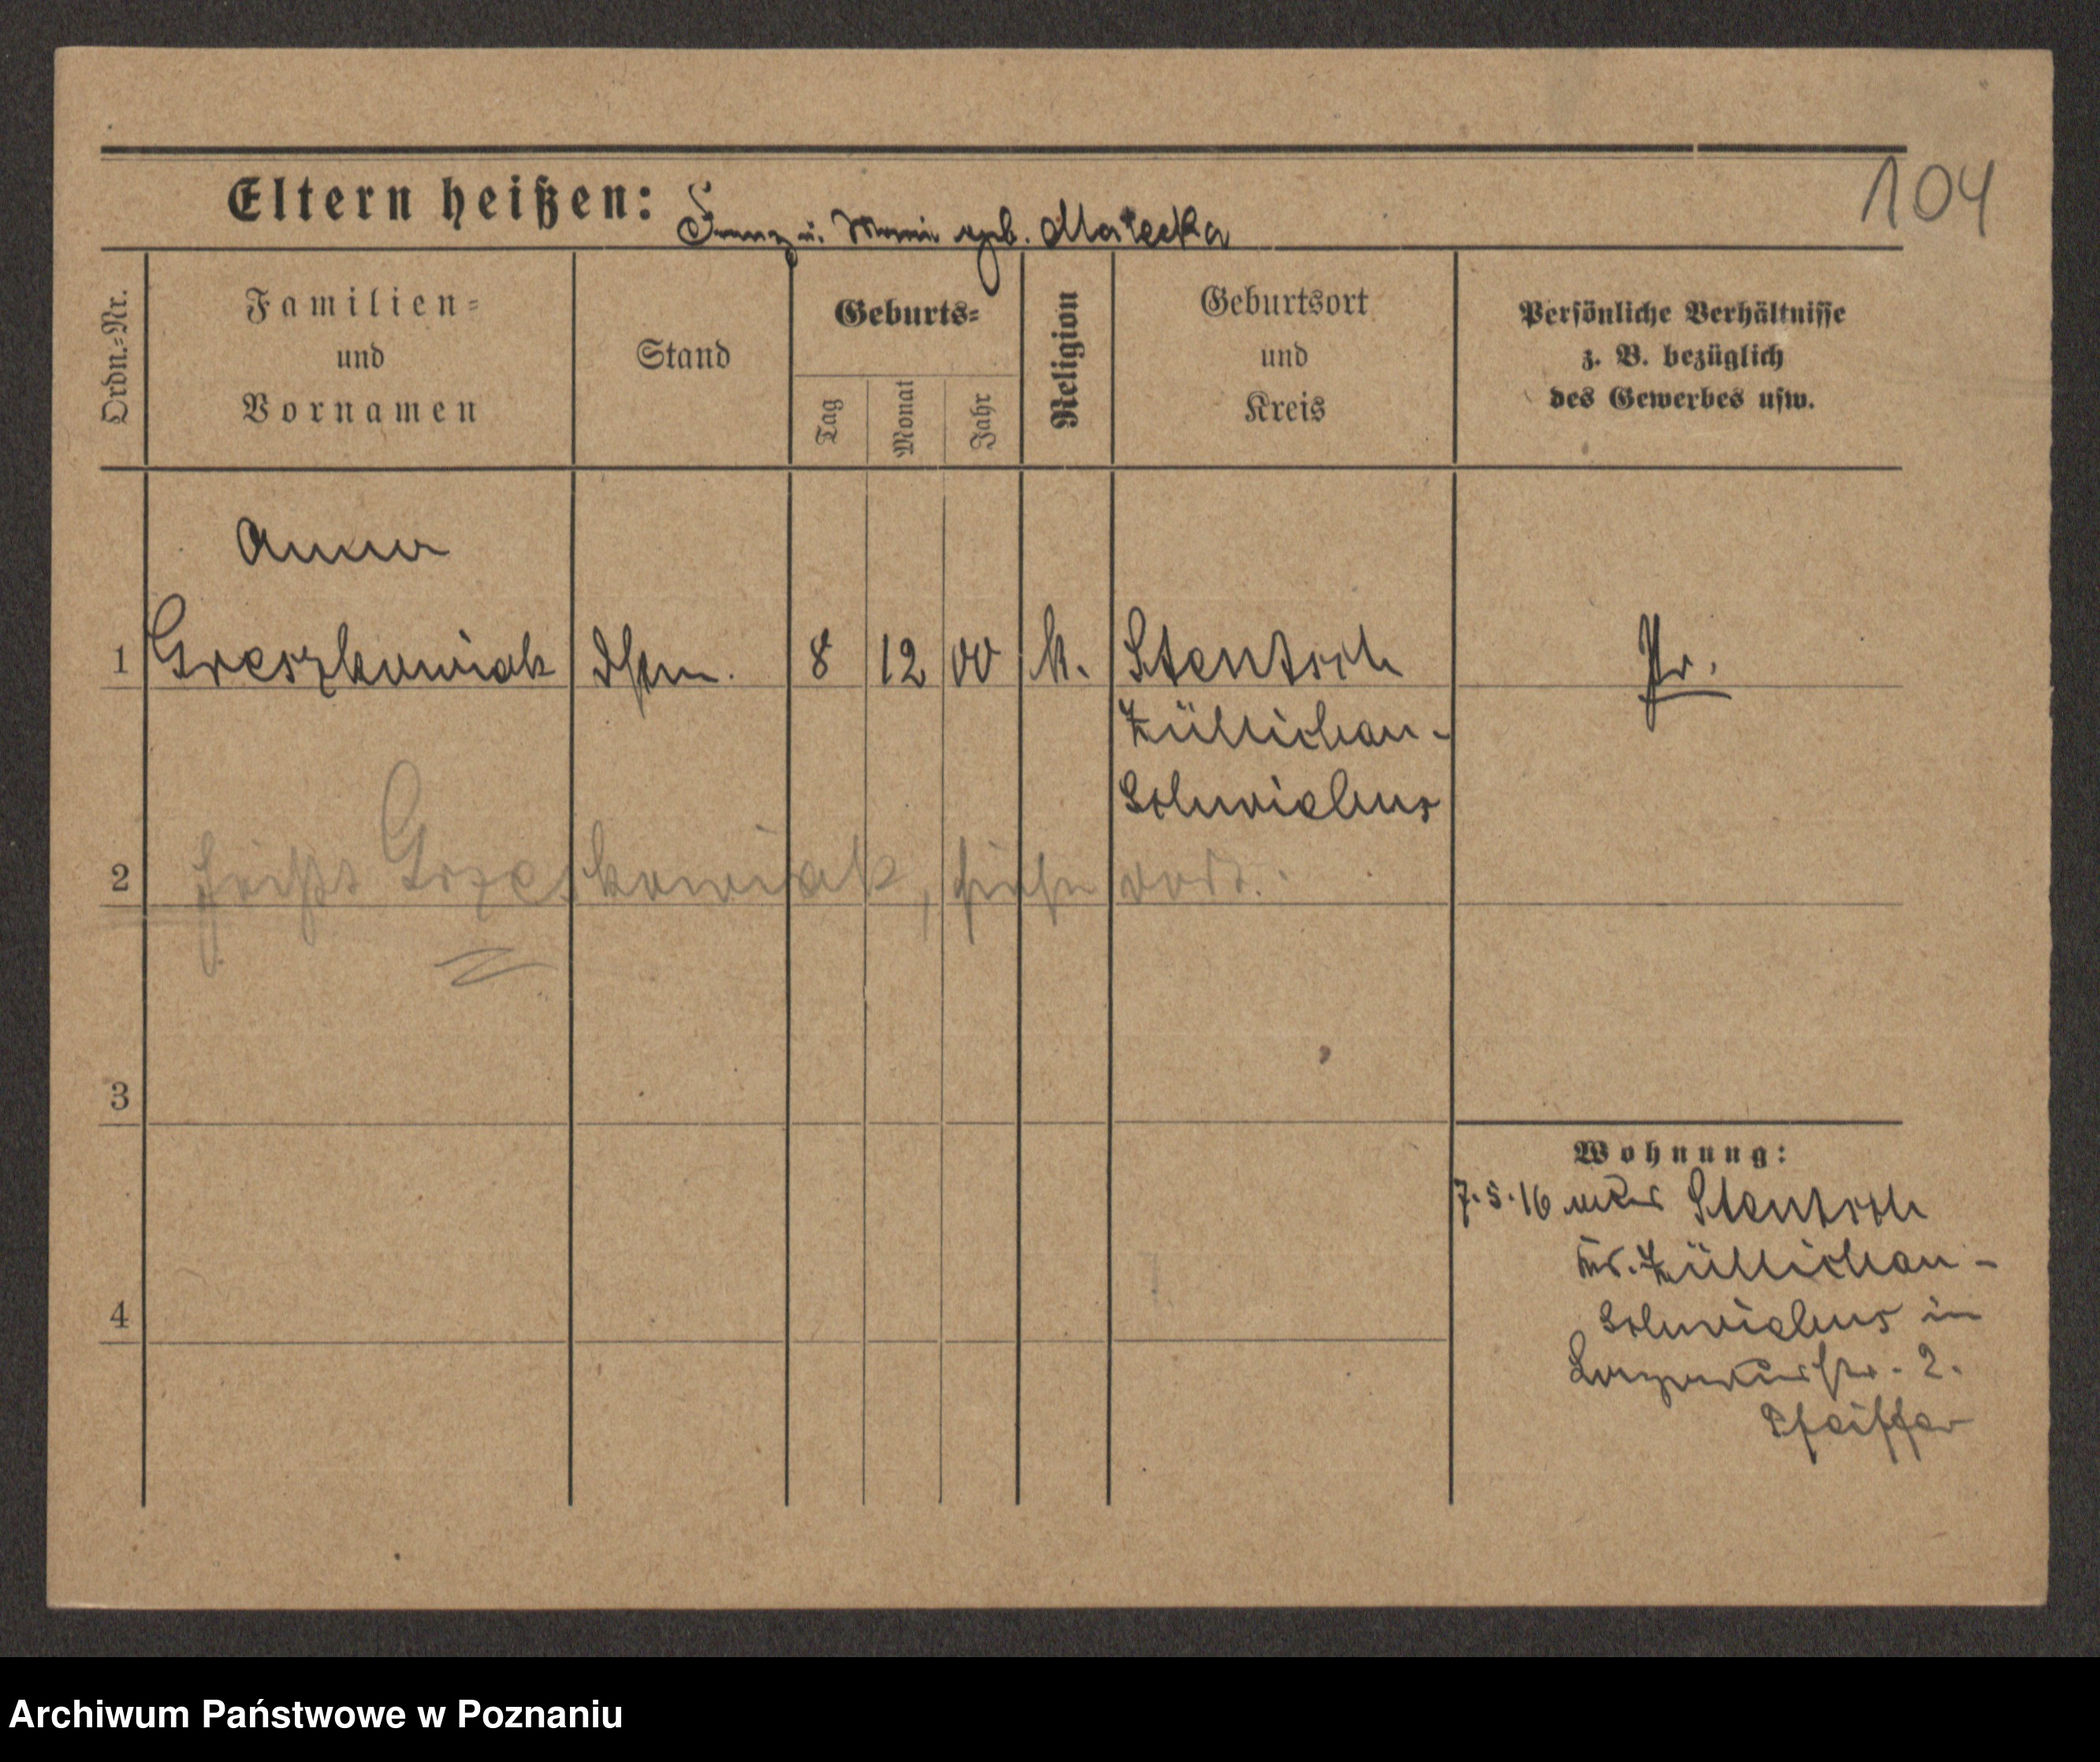 104
Eltern heißen: Franz u. Marie geb. Małecka
Ordn.-Nr.
Familien-
und
Vornamen
Stand
Geburts-
Tag
Monat
Jahr
Religion
Geburtsort
und
Kreis
Persönliche Verhältnisse
z. B. bezüglich
des Gewerbes usw.
Anna
1 Greszkowiak 8 12 00 k. Stentsch Pr.
Züllichau-
Schwiebus
2 heißt Grzeskowiak, siehe dort.
3
4
Wohnung:
7.5.16 Stentsch
Kr. Züllichau-
Schwiebus in
2.
Pfeiffer
Archiwum Państwowe w Poznaniu